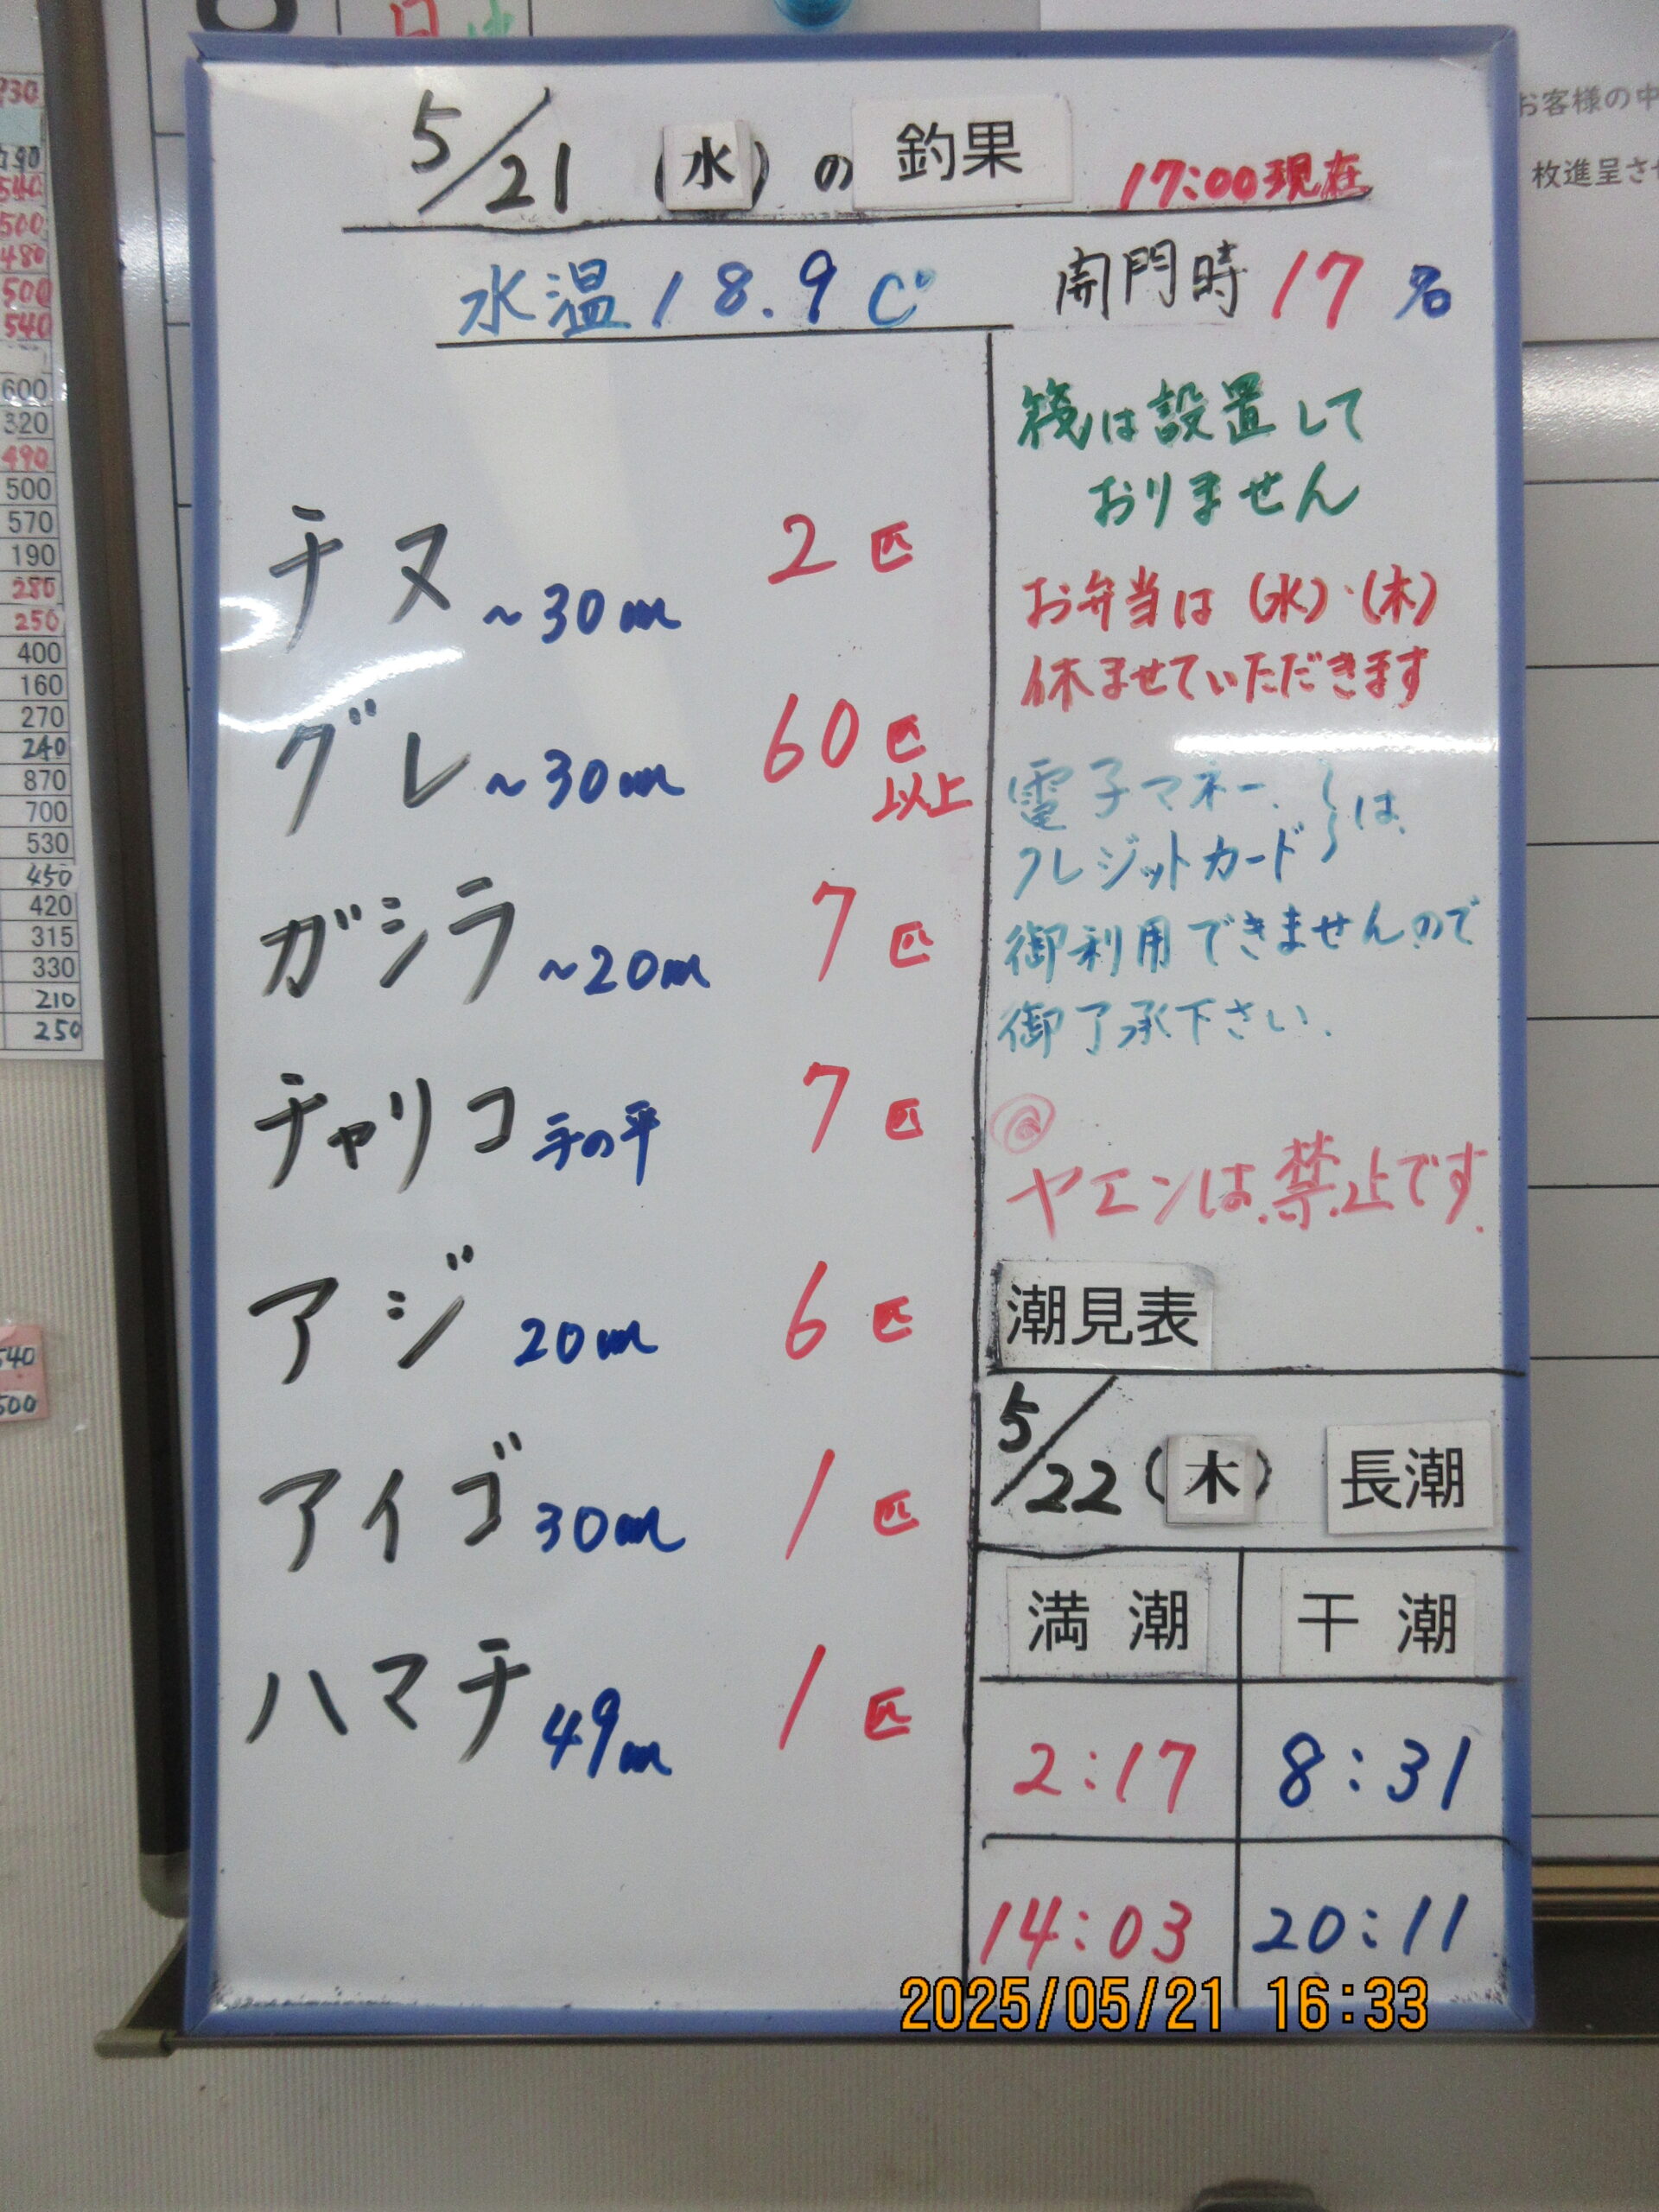 5/21 (水)の 釣果 17:00現在
水温 18.9 C° 開門時 17名
チヌ ~30cm 2匹
グレ ~30cm 60匹以上
ガシラ ~20cm 7匹
チャリコ 手の平 7匹
アジ 20cm 6匹
アイゴ 30cm 1匹
ハマチ 49cm 1匹
筏は設置して
おりません
お弁当は(水)・(木)
休ませていただきます
電子マネー、
クレジットカード は
御利用できませんので
御了承下さい.
@
ヤエンは禁止です.
潮見表
5/22 (木) 長潮
満潮 干潮
2:17 8:31
14:03 20:11
2025/05/21 16:33
お客様の中
枚進呈させ
930
540
500
480
500
540
600
320
490
500
570
190
280
250
400
160
270
240
870
700
530
450
420
315
330
210
250
540
500